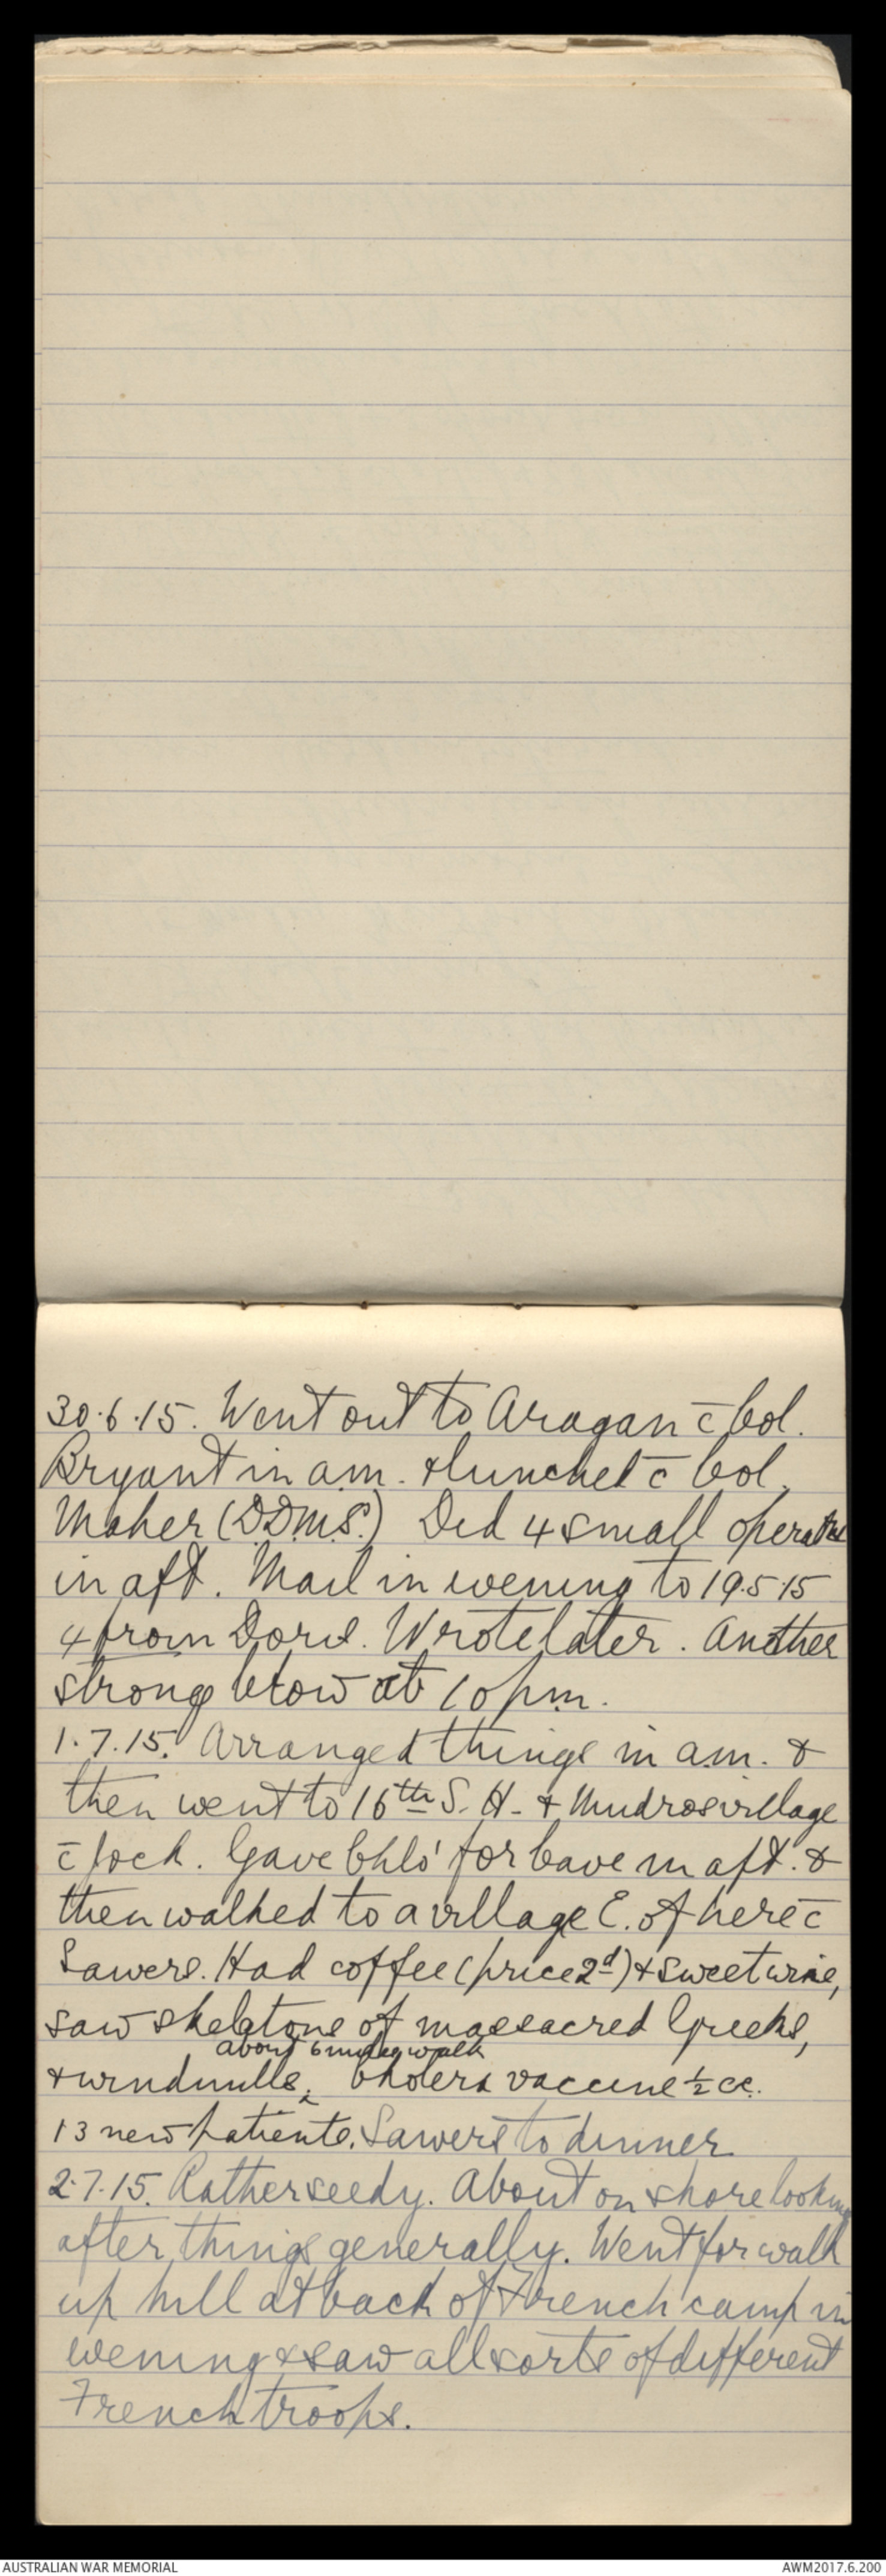 30.6.15. Went out to Aragan c̄ Col.
Bryant in a.m. & lunched c̄ Col.
Maher (DDMS.) Did 4 small
in aft. Mail in evening to 19.5.15
4 from Doris. Wrote later. Another
strong blow at 10 pm.
1.7.15. Arranged things in a.m. &
then went to 16th S. H. & Mudros village
c̄ Jock. Gave Chlo' for Cave in aft. &
then walked to a village E. of here c̄
Sawers. Had coffee (price 2d) & sweet wine,
saw skeletons of massacred Greeks,
about 6 miles walk
& windmills, Cholera vaccine ½ cc.
13 new patients. Sawers to dinner
2.7.15. Rather seedy. About on shore looking
after things generally. Went for walk
up hill at back of French camp in
evening & saw all sorts of different
French troops.
AUSTRALIAN WAR MEMORIAL
AWM2017.6.200